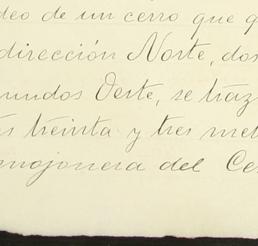 deo de un cerro que q
dirección Norte, dos
undos Oeste, se traz
s treinta y tres met
mojonera del Ce